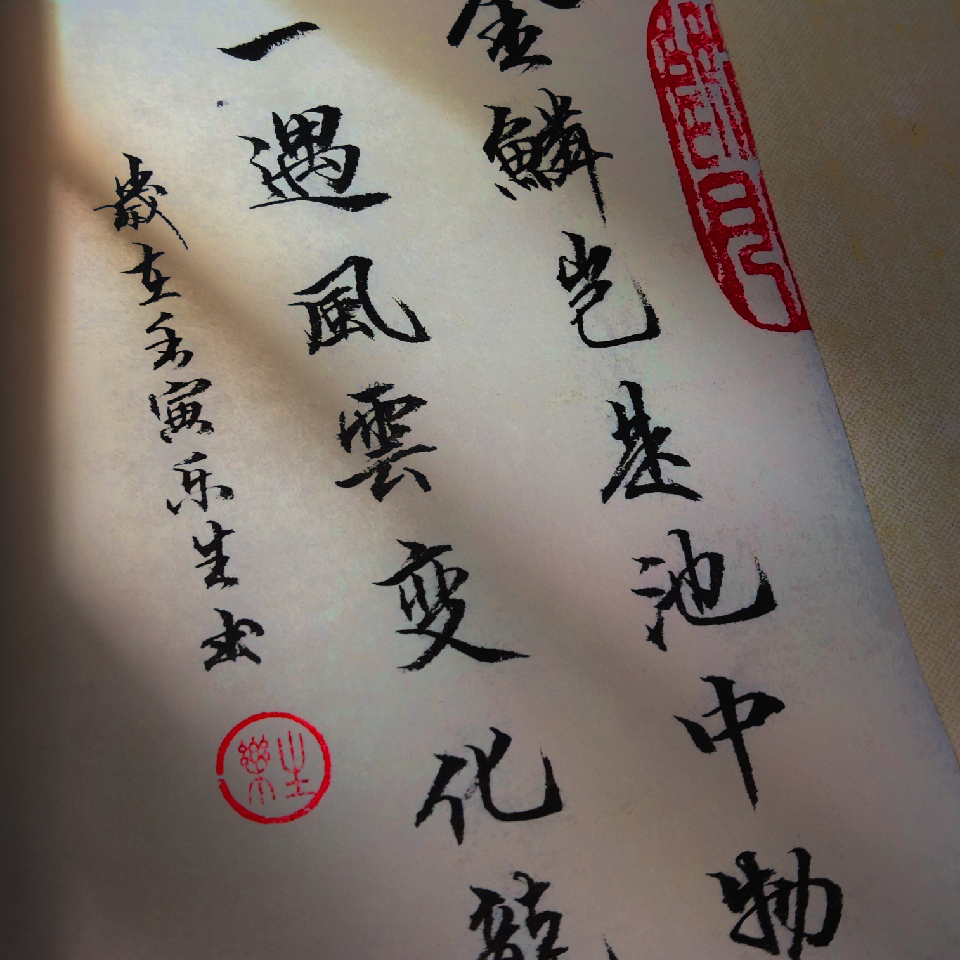 金鳞岂是池中物
一遇風雲变化龍
歲在壬寅乐生书
樂生